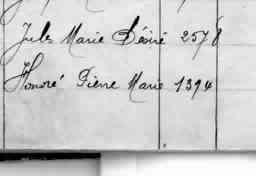 Jules Marie Désiré 2578
Honoré Pierre Marie 1394